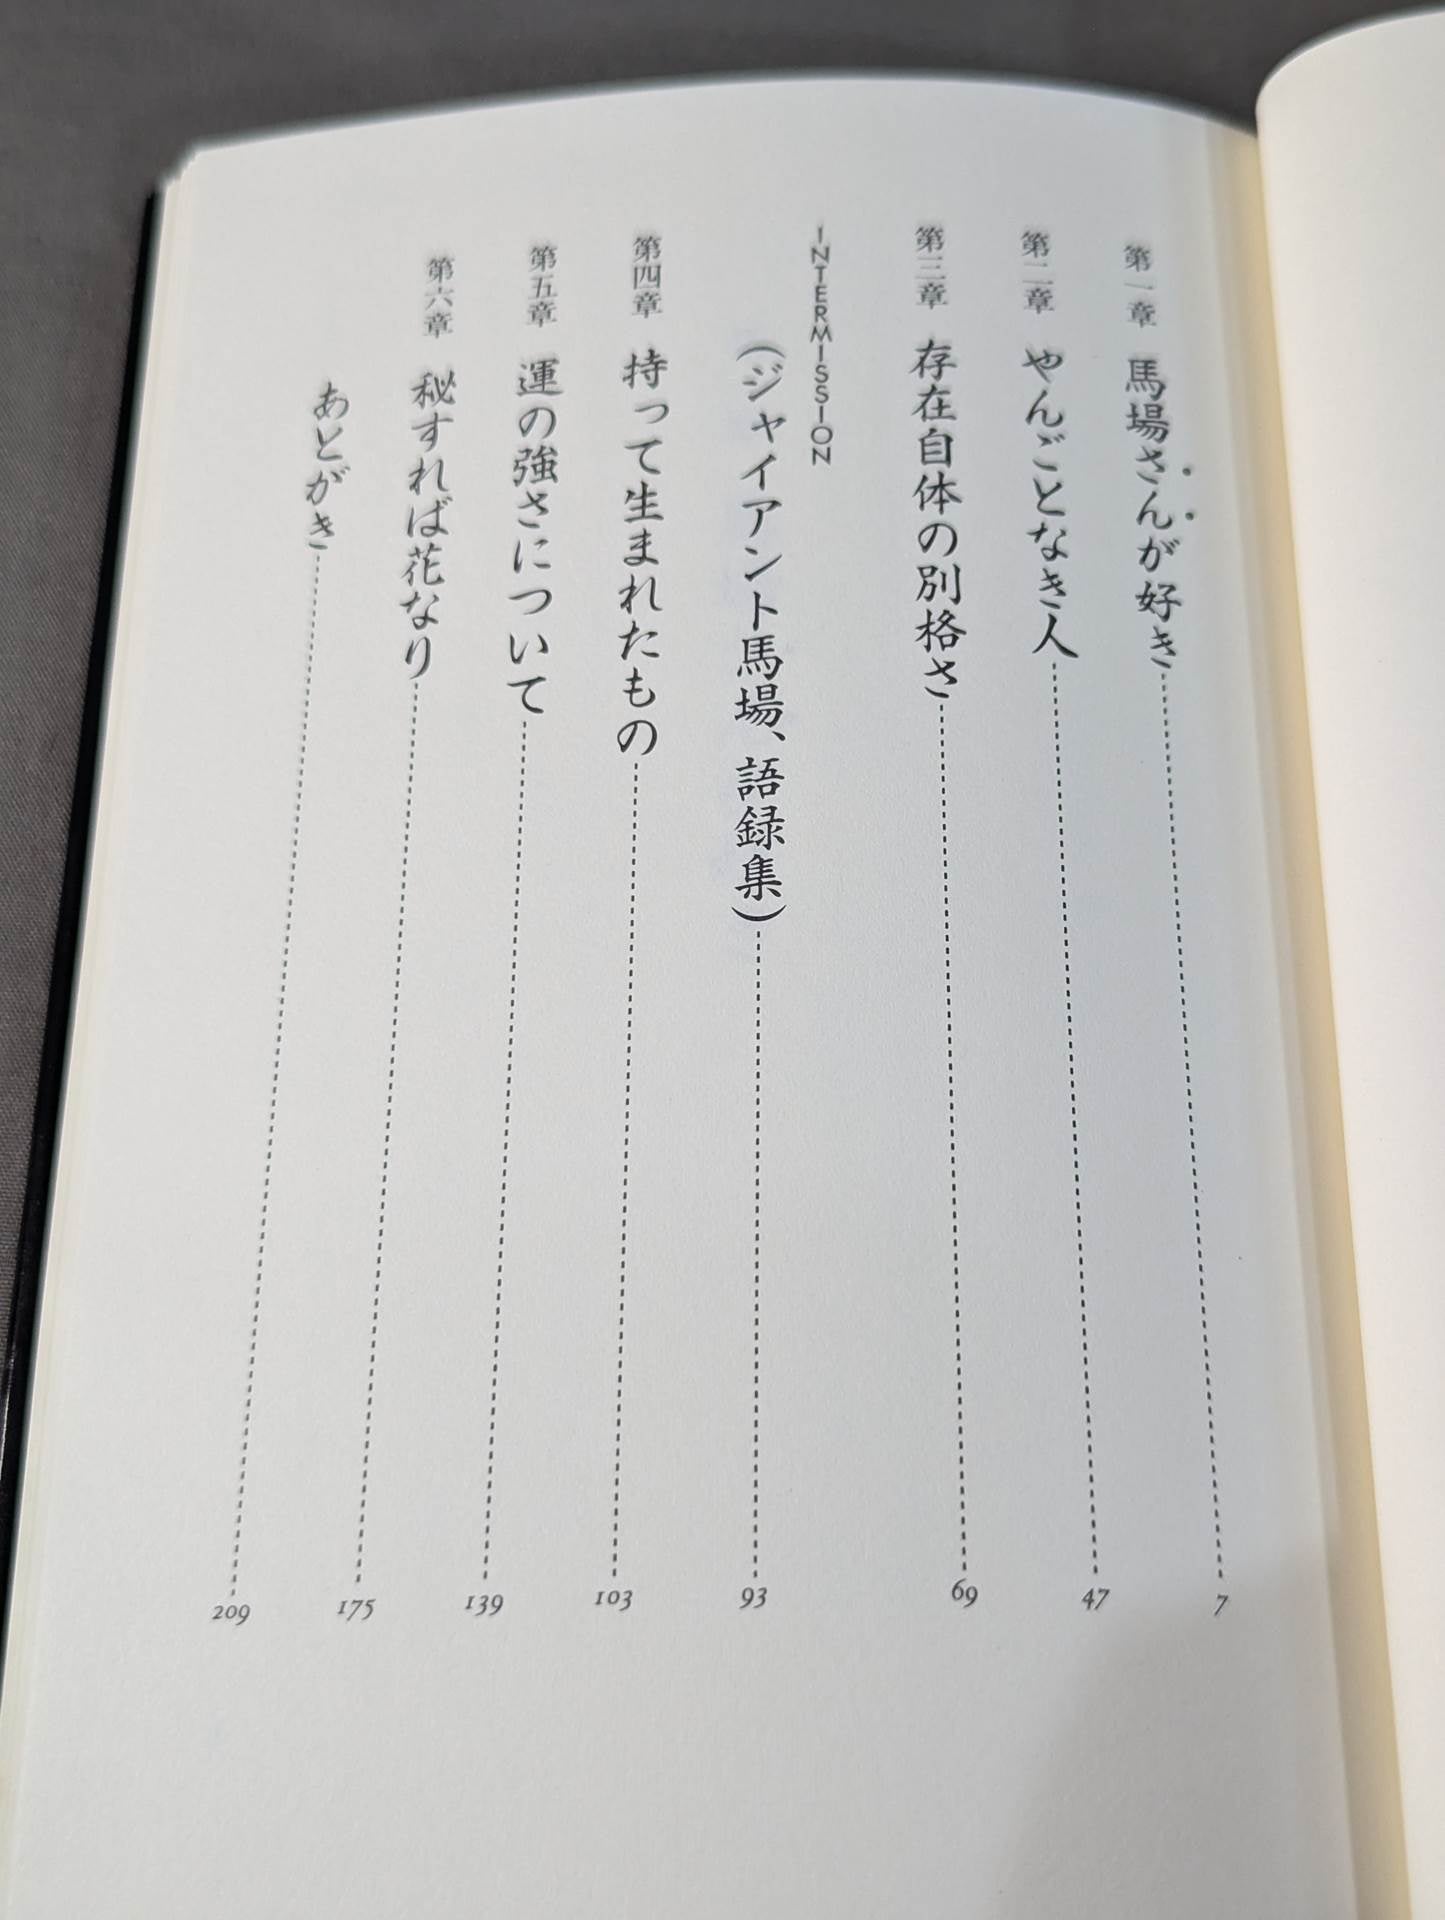 第一章 馬場さんが好き 7
第二章 やんごとなき人 47
第三章 存在自体の別格さ 69
INTERMISSION
(ジャイアント馬場、語録集) 93
第四章 持って生まれたもの 103
第五章 運の強さについて 139
第六章 秘すれば花なり 175
あとがき 209